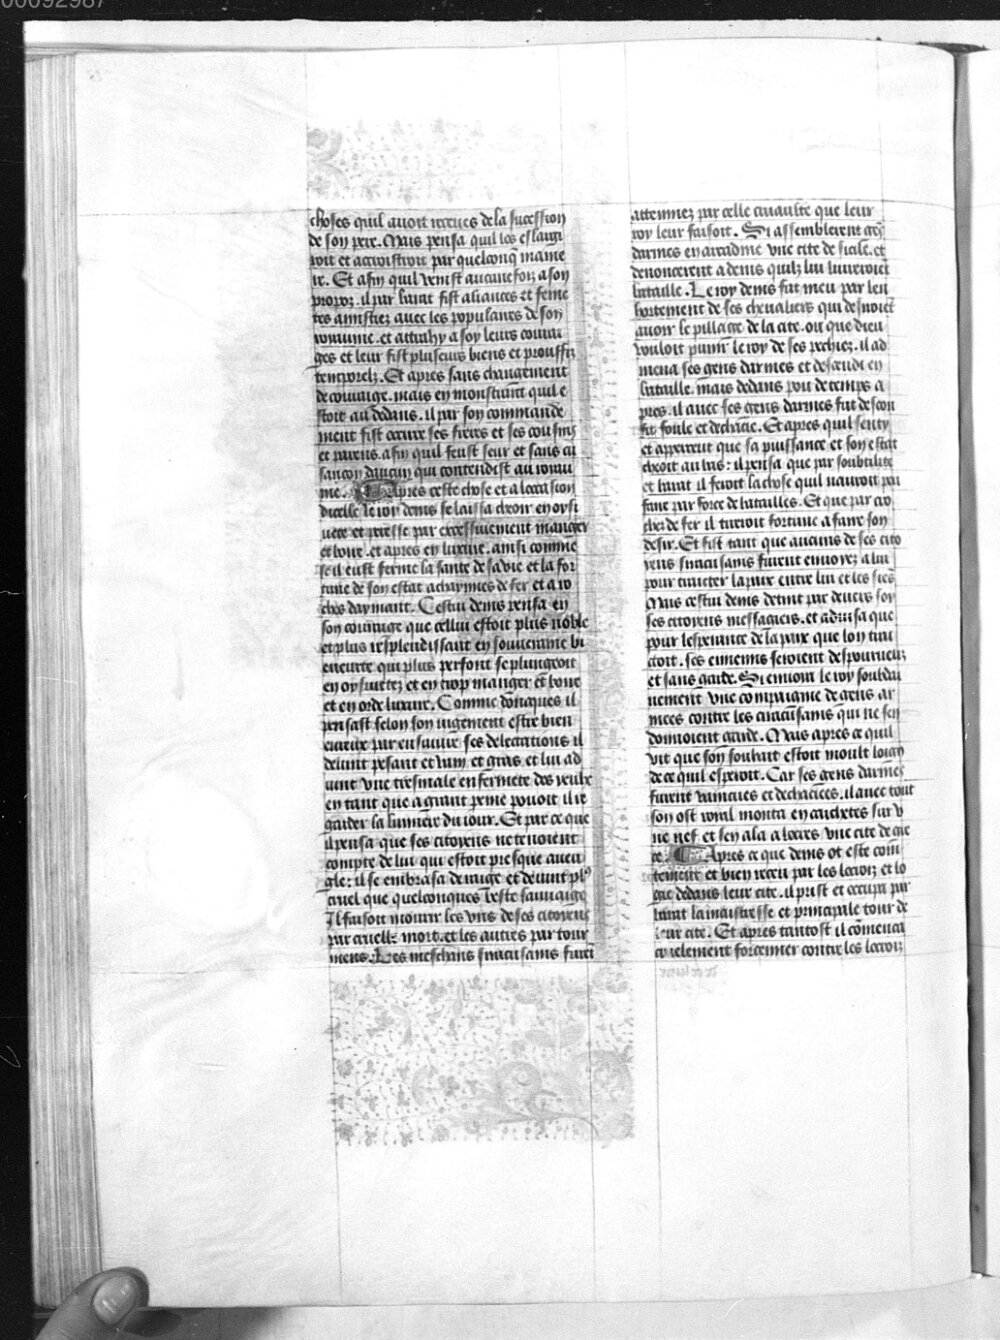 choses quil auoit receues dela succession
de son pere. Mais pensa quil les eslargi
roit et accroistroit par quelconq̄ manie
re. Et afin quil venist aucunefoiz a son
propoz. il par barat fist aliances et feinte
tes amistiez auec les populaires de son
royaume. et attrahy a soy leurs coura
ges et leur fist pluseurs biens et prouffiz
temporelz. Et apres sans changement
de couraige. mais en monstrant quil e
stoit au dedans. il par son commande
ment fist occire ses freres et ses cousins
et parens. afin quil feust seur et sans
souspecon daucun qui contendist au royau
me. Apres ceste chose et a loccasion
dicelle le roy denis se laissa cheoir en oysi
uete et presse par excessiuement manger
et boire. et apres en luxure. ainsi comme
se il eust ferme la sante de sa vie et la for
tune de son estat a chaynnes de fer et a ro
ches daymant. Cestui denis pensa en
son couraige que cellui estoit plus noble
et plus resplendissant en souueraine bi
eneurte qui plus parfont se plungeoit
en oysiuetez et en trop manger et boire
et en orde luxure. Comme doncques il
pensast selon son iugement estre bien
eureux par ensuiuir ses delectations il
deuint pesant et vain et gras. et lui ad
uint vne tresmale enfermete des yeulx
en tant que a grant peine pouoit il re
garder la lumiere du iour. Et par ce que
il pensa que ses citoyens ne tenoient
compte de lui qui estoit presque aueu
gle: il se embrasa de raige et deuint plꝰ
cruel que quelconques beste sauuaige
Il faisoit mourir les vns de ses citoyens
par cruelle mort. et les autres par tour
mens. Les meschans siracusains furent
attennez par celle cruaulte que leur
roy leur faisoit. Si assemblerent gēs
darmes en arcadine vne cite de sicile. et
denoncerent a denis quilz lui liureroiēt
bataille. Le roy denis fut meu par len
hortement de ses cheualiers qui desiroiēt
auoir le pillage de la cite. ou que dieu
vouloit punir le roy de ses pechiez. il ad
mena ses gens darmes et descendi en
bataille. mais dedans pou de temps a
pres. il auec ses gens darmes fut descon
fit foule et dechacie. Et apres quil senty
et apperceut que sa puissance et son estat
cheoit au bas: il pensa que par soubtilite
et barat il feroit la chose quil nauroit peu
faire par force de batailles. Et que par cro
chez de fer il tireroit fortune a faire son
desir. Et fist tant que aucuns de ses cito
yens siracusains furent enuoyez a lui
pour traicter la paix entre lui et les siēs
Mais cestui denis detint par deuers soy
ses citoyens messagiers. et aduisa que
pour lesperance de la paix que lon trai
ctoit. ses ennemis seroient despourueuz
et sans garde. Si enuoia le roy soubdai
nement vne compaignie de gens ar
mees contre les siracusains qui ne sen
donnoient garde. Mais apres ce quil
vit que son souhait estoit moult loing
de ce quil esperoit. Car ses gens darmes
furent vaincues et dechacees. il auec tout
son ost royal monta en cachetes sur v
ne nef et sen ala a locres vne cite de gre
ce. Apres ce que denis ot este com
tement et bien receu par les locroiz et lo
gie dedans leur cite. il prist et occupa par
barat la maistresse et principale tour de
leur cite. Et apres tantost il comenca
cruelement forcenner contre les locroiz